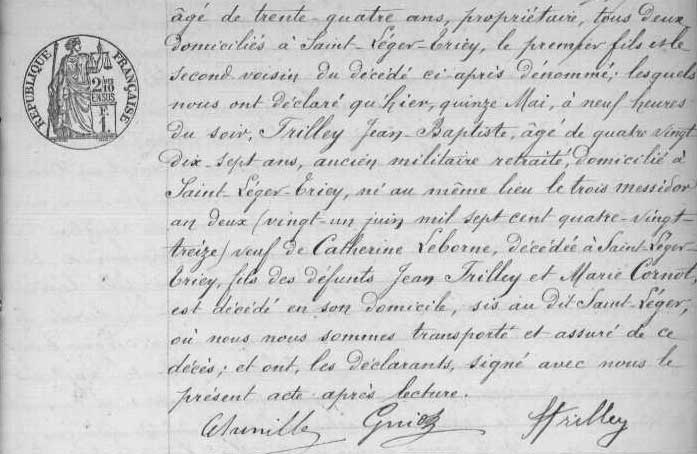 âgé de trente-quatre ans, propriétaire, tous deux
domiciliés à Saint-Léger-Triey, le premier fils et le
second voisin du décédé ci-après dénommé; lesquels
nous ont déclaré qu'hier, quinze Mai, à neuf heures
du soir, Trilley Jean-Baptiste, âgé de quatre vingt
dix-sept ans, ancien militaire retraité, domicilié à
Saint-Léger-Triey, né au même lieu le trois messidor
an deux (vingt-un juin mil sept cent quatre-vingt-
treize) veuf de Catherine Leborne, décédée à Saint-Léger
Triey, fils des défunts Jean Trilley et Marie Cornot,
est décédé en son domicile, sis au dit Saint-Léger,
où nous nous sommes transporté et assuré de ce
décès; et ont, les déclarants, signé avec nous le
présent acte après lecture.
Trilley
RÉPUBLIQUE FRANÇAISE